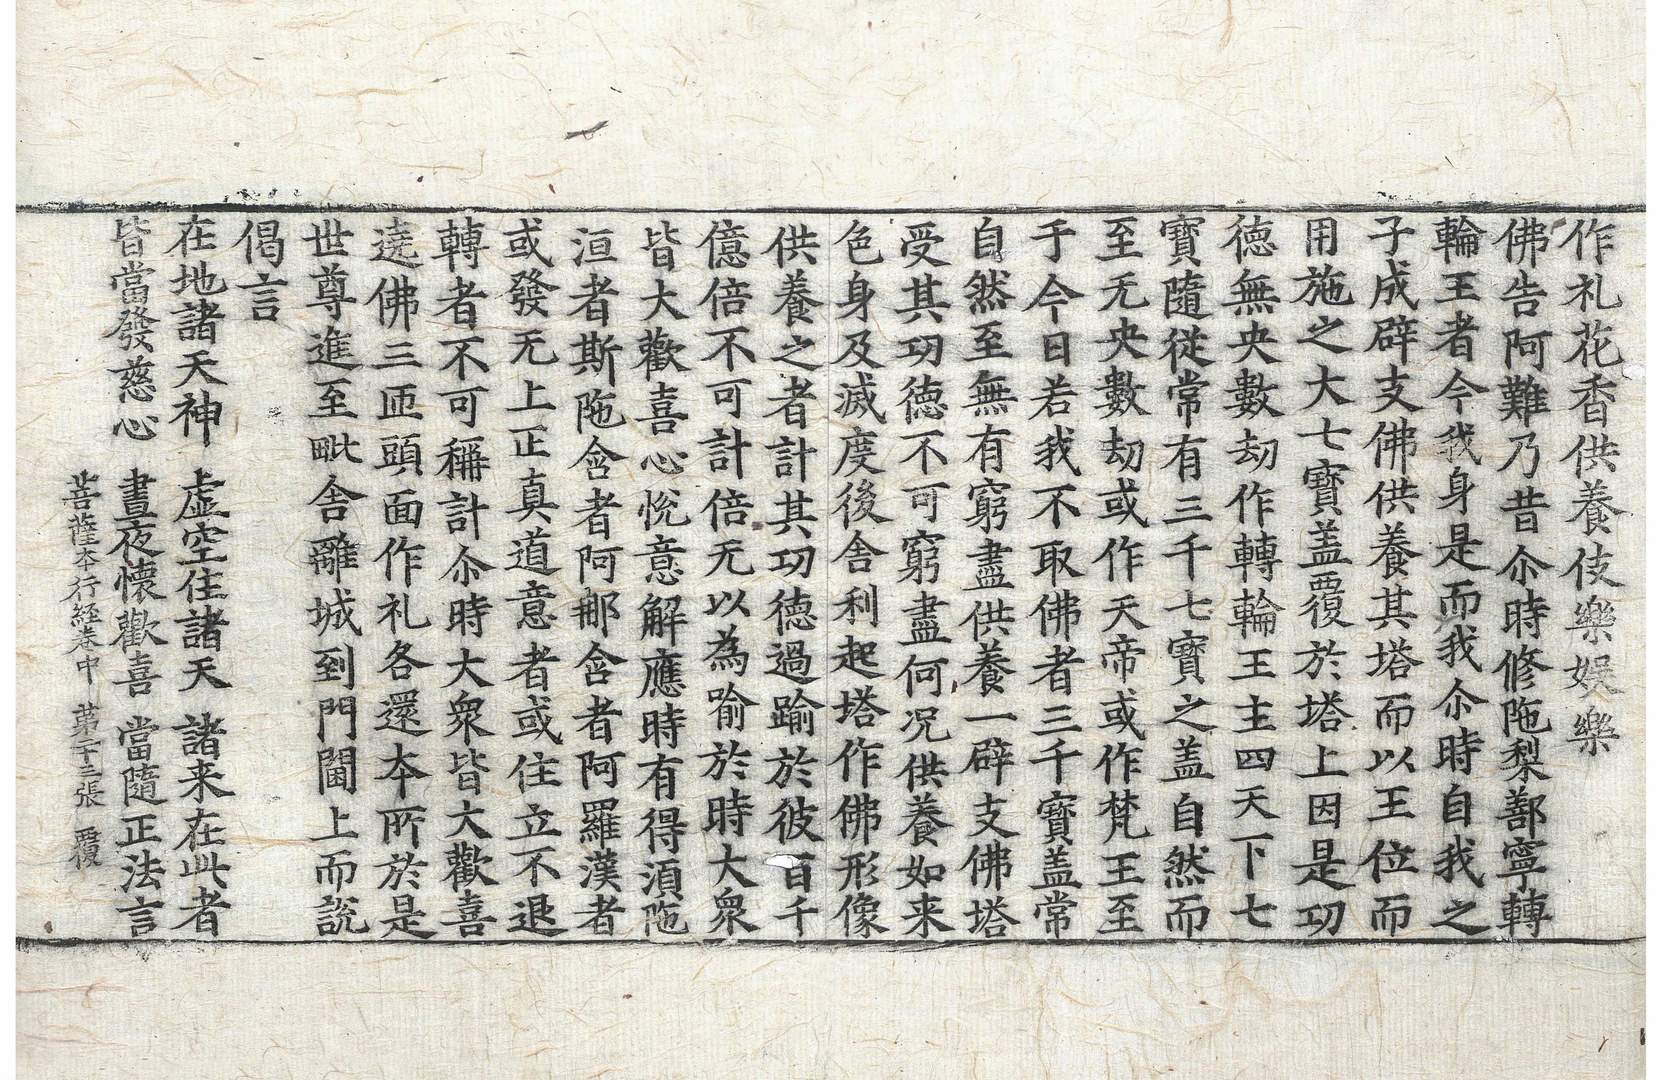 作礼花香供養伎樂娱樂
佛告阿難乃昔尒時修陁梨鄯寧轉
輪王者今我身是而我尒時自我之
子成辟支佛供養其塔而以王位而
用施之大七寶盖覆於塔上因是功
德無央數劫作轉輪王主四天下七
寶隨從常有三千七寶之盖自然而
至无央數劫或作天帝或作梵王至
于今日若我不取佛者三千寶盖常
自然至無有窮盡供養一辟支佛塔
受其功德不可窮盡何况供養如来
色身及滅度後舎利起塔作佛形像
供養之者計其功德過踰於彼百千
億倍不可計倍无以為踰於時大衆
皆大歡喜心悅意解應時有得湏陁
洹者斯陁含者阿那含者阿羅漢者
或發无上正真道意者或住立不退
轉者不可稱計尒時大衆皆大歡喜
遶佛三匝頭面作礼各還夲所於是
世尊進至毗舎離城到門閫上而說
偈言
在地諸天神 虛空住諸天 諸来在此者
皆當發慈心 晝夜懷歡喜 當隨正法言
菩薩夲行経卷中 苐二十三張 覆